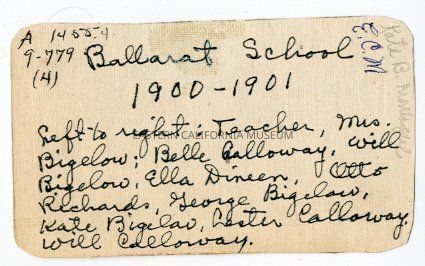 A 1455.4
9-779
(4)
Ballarat School
1900-1901
Left to right: Teacher, Mrs.
Bigelow; Belle Calloway, Will
Bigelow, Ella Dineen, Otto
Richards, George Bigelow,
Kate Bigelow, Lester Calloway,
Will Calloway.
EASTERN CALIFORNIA MUSEUM
ECM
Kate B